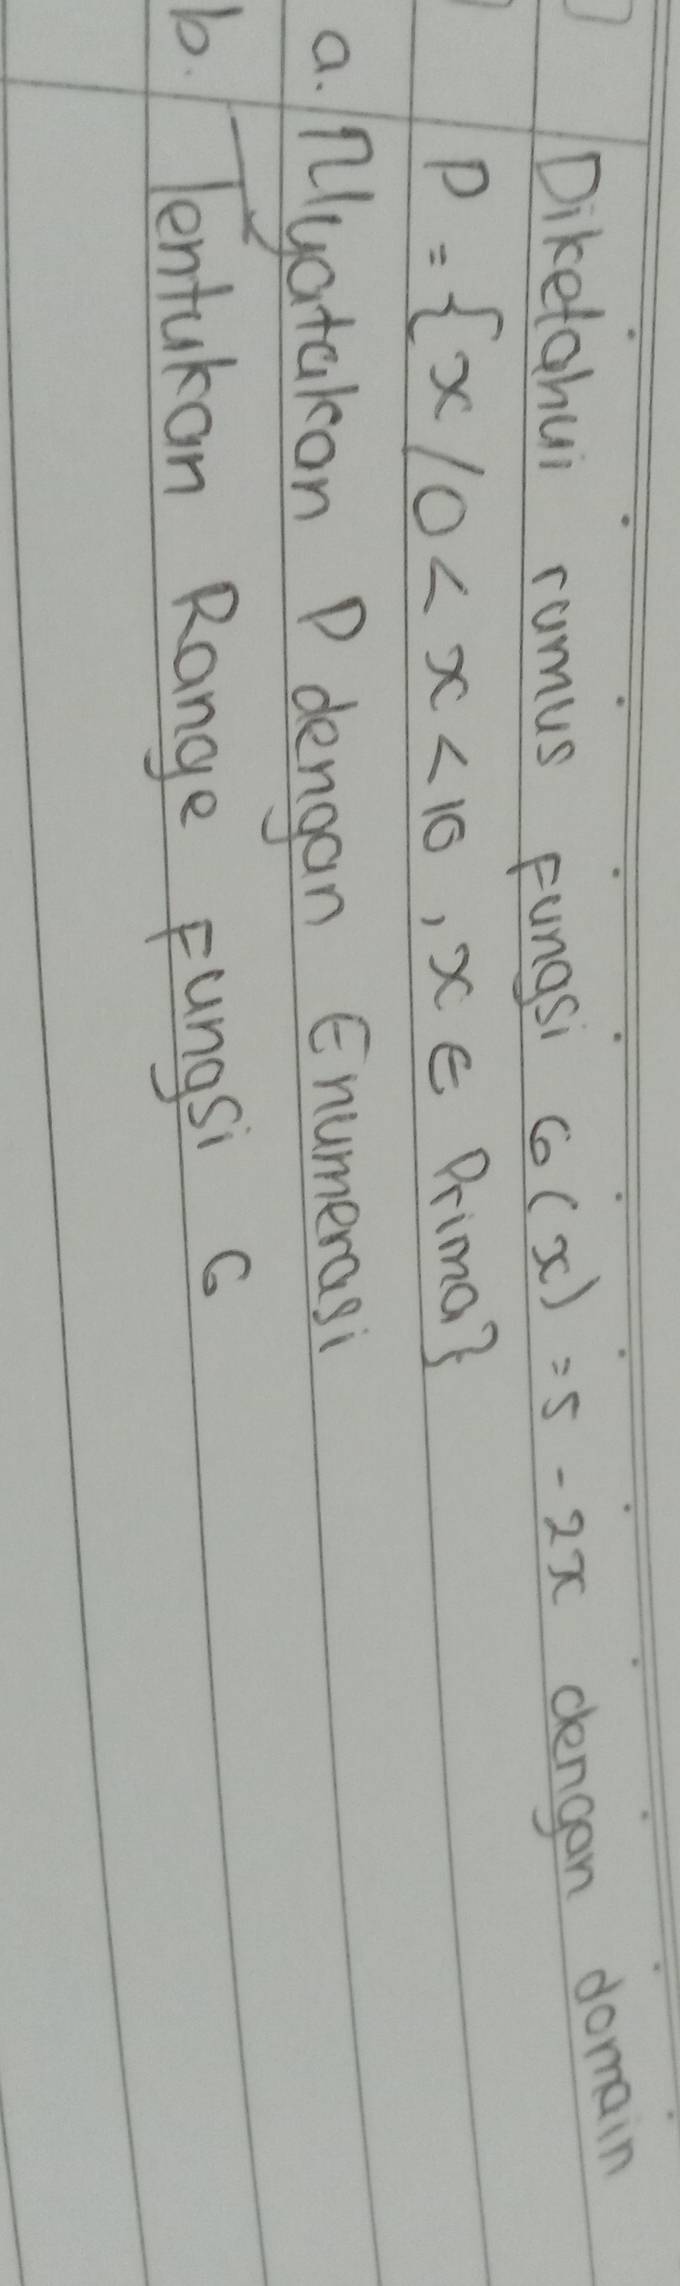 Diketahui rumus Fungsi G(x) = 5 - 2x dengan domain
P = {x / 0 < x < 10, x ∈ Prima}
a. Nyatakan P dengan Enumerasi
b. Tentukan Range Fungsi G